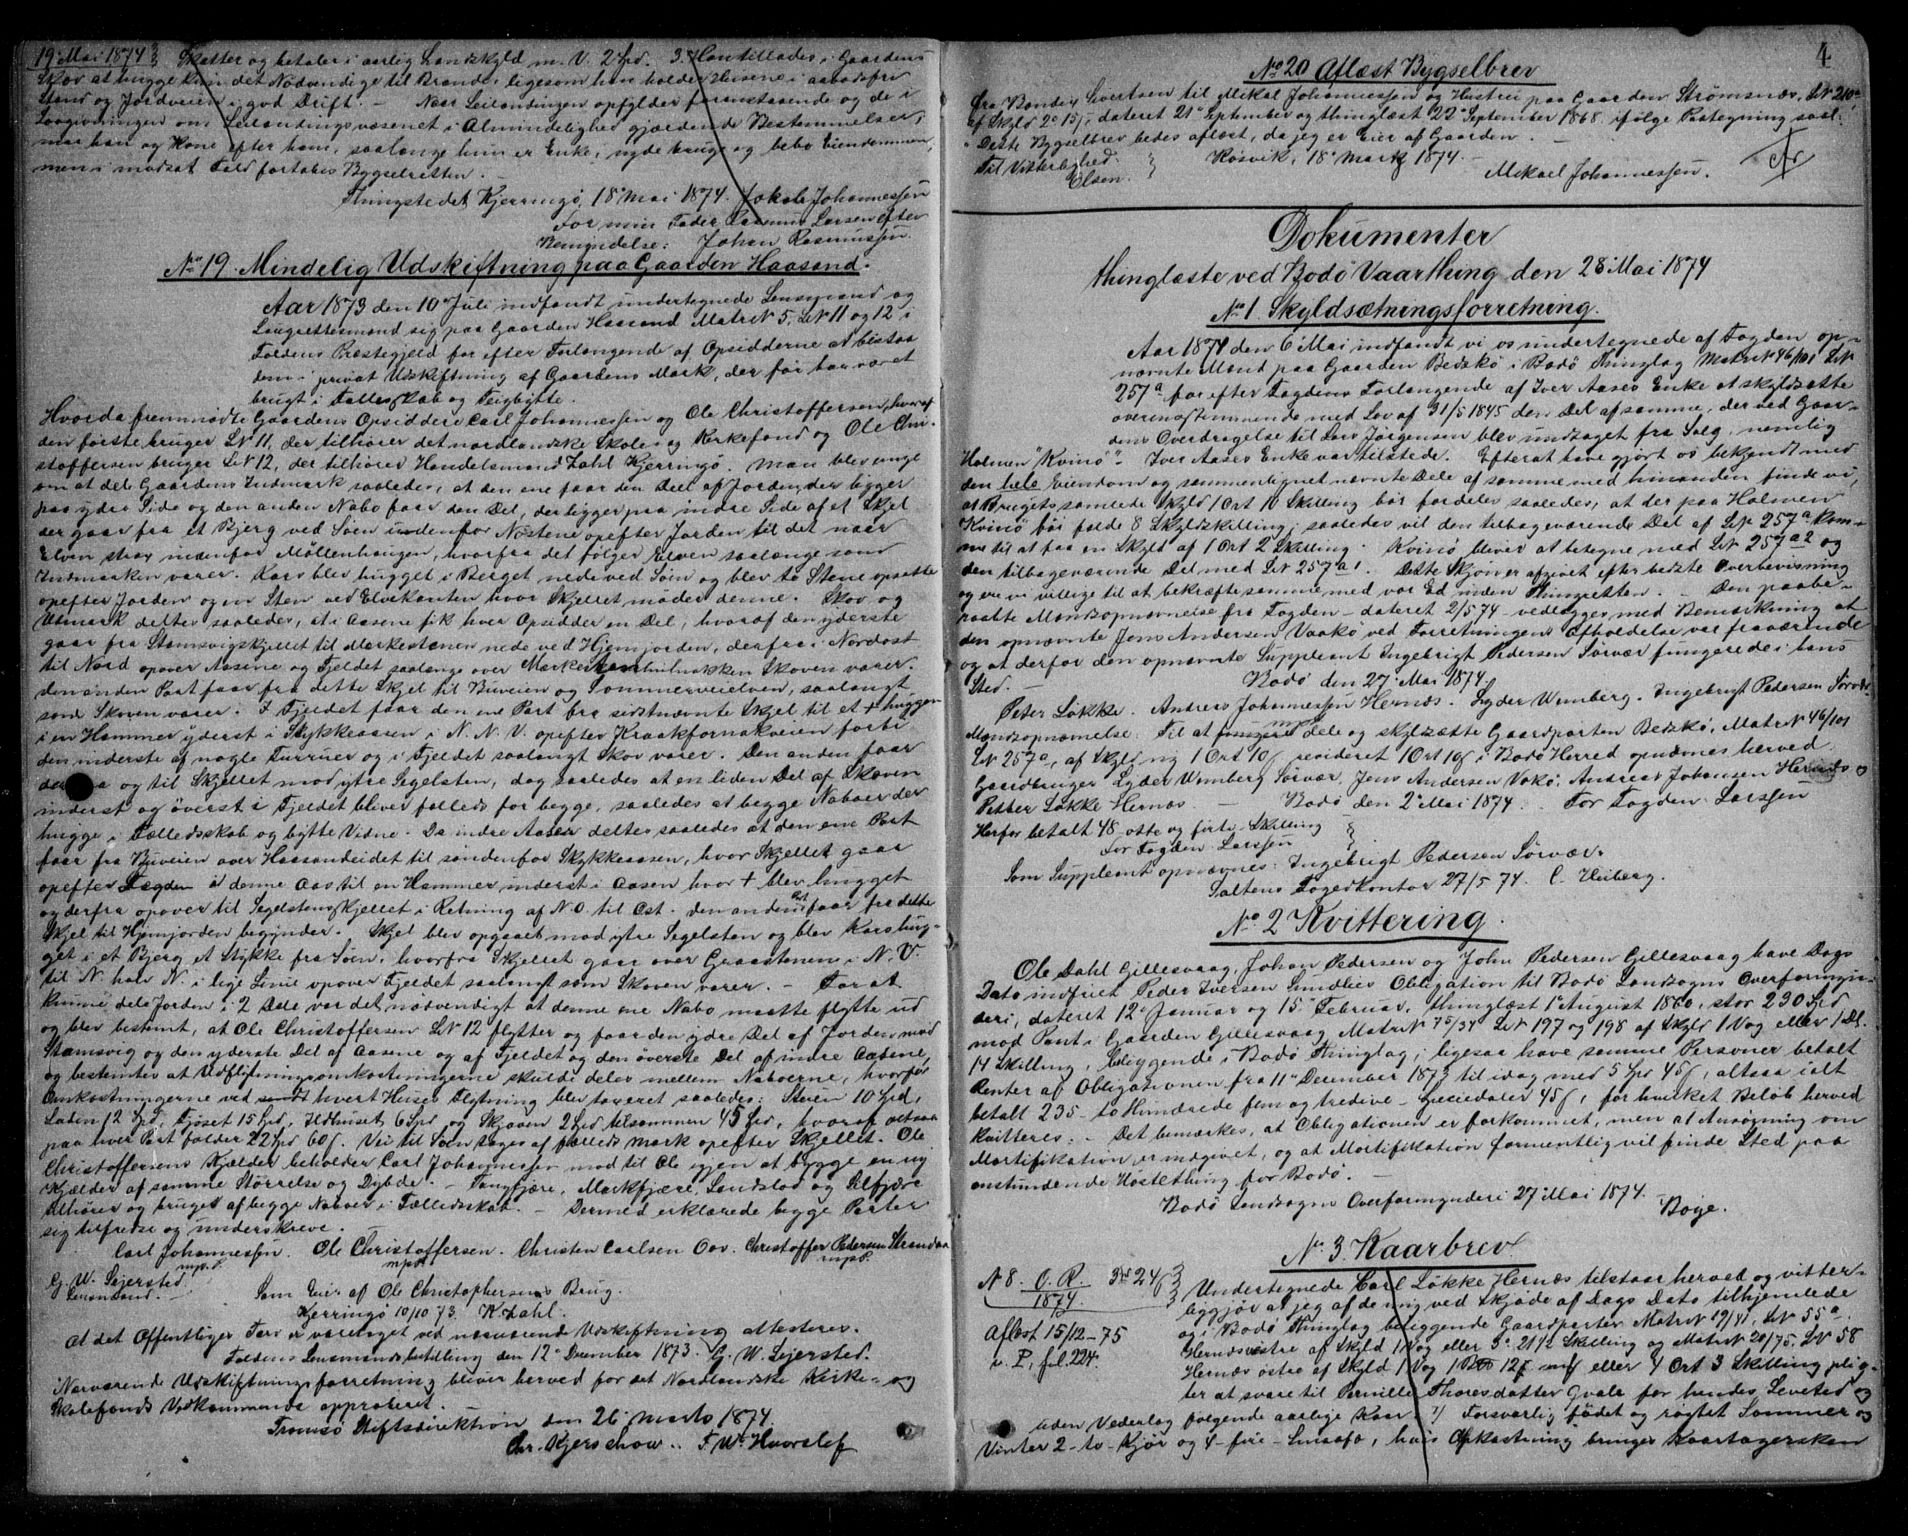 19 Mai 1874
Skatter og betaler i aarlig Landskyld m. V. 2 Spd. 3. Han tillades i Gaardens
Skov at hugge kun det Nødvendige til Brænde, ligesom han holder Husene i aabodsfri
Stand og Jordveien i god Drift. – Naar Leilændingen opfylder foranstaaende og de i
Lovgivningen om Leilændingsvæsenet i Almindelighed gjældende Bestemmelser,
maa han og Kone efter ham, saalænge hun er Enke, nyde bruge og bebo Eiendommen,
men i modsat Fald fortabes Bygselretten. –
Thingstedet Kjerringø, 18 Mai 1874. Jakob Johannessen
For min Fader Rasmus Larsen efter
Bemyndelse: Johan Rasmussen.
No 19. Mindelig Udskiftning paa Gaarden Haasand.
Aar 1873 den 10 Juli indfandt undertegnede Lensmand og
Laugrettesmænd sig paa Gaarden Haasand Matr N 5, LN 11 og 12 i
Foldens Præstegjeld for efter Forlangende af Opsidderne at bistaa
dem i privat Udskiftning af Gaardens Mark, der før har været
brugt i Fællesskab og Teigbytte.
Hvorda fremmødte Gaardens Opsiddere Carl Johannessen og Ole Christoffersen, hvoraf
den første bruger LN 11, der tilhører det nordlandske Skole og Kirkefond og Ole Chri-
stoffersen bruger LN 12, der tilhører Handelsmand Zahl Kjerringø. Man blev enige
om at dele Gaardens Indmark saaledes, at den ene faar den Deel af Jorden, der ligger
paa ydre Side og den anden Nabo faar den Del, der ligger paa indre Side af et Skjel
der gaar fra et Bjerg ved Søen udenfor Nøstene opefter Jorden til det naar
Elven strax indenfor Möllenhaugen, hvorfra det følger Elven saalænge som
Indmarken varer. Kors blev hugget i Berget nede ved Søen og blev to Stene opsatte
opefter Jorden og en Sten ved Elvekanten hvor Skjellet møder denne. Skov og
Udmark deltes saaledes, at i Aasene fik hver Opsidder en Del, hvoraf den yderste
gaar fra Stamsvigskjellet til Merkestenen nede ved Hjemjorden, derfra i Nordost
til Nord opover Aasene og Fjeldet saalangt over Skoven varer.
den anden Part faar fra dette Skjel til Buveien og Sommerveielven, saalangt
som Skoven varer. I Fjeldet faar den ene Part fra sidstnævnte Skjel til et + huggen
i en Hammer yderst i Stykkeaasen i N. N. V. opefter Kraakfornakveien forbi
den inderste af nogle Furruer og i Fjeldet saalangt Skov varer. Den anden faar
og til Skjellet mod ytre Segelsten, dog saaledes at en liden Del af Skoven
inderst og øverst i Fjeldet bliver fælleds for begge, saaledes at begge Naboer der
hugge i Fælledsskab og bytte Vidne. Da indre Aaser deltes saaledes at den ene Part
faar fra Buveien over Haasandeidet til søndenfor Stykkeaasen, hvor Skjellet gaar
opefter i denne Aas til en Hammer inderst i Aasen hvor + blev hugget
og derfra opover til Segelstenskjellet i Retning af N. O. til Ost. Den anden Part faar fra dette
Skjel til Hjemjorden begynder. Skjel blev opgaaet mod ytre Segelsten og blev Kors hug-
get i et Bjerg et Stykke fra Søen, hvorfra Skjellet gaar over Graastenene i N. V.
til N. halv N. i lige Linie opover Fjeldet saalangt som Skoven varer. – For at
kunne dele Jorden i 2 Dele var det nødvendigt at denne ene Nabo maatte flytte ud
og blev bestemt, at Ole Christoffersen LN 12 flytter og faar den ydre Del af Jorden mod
Stamsvig og den yderste Del af Aasene og af Fjeldet og den øverste Del af indre Aasene,
og bestemtes at Udflytningsomkostningerne skulde deles mellem Naboerne, hvorfor
Omkostningerne ved hvert Huses Flytning blev taxeret saaledes: Stuen 10 Spd,
Laden 12 Spd, Fjøset 15 Spd, Ildhuset 6 Spd og Skjaaen 2 Spd tilsammen 45 Spd, hvoraf altsaa
paa hver Part falder 22 Spd 60 ſ. Vei til Søen tages af fælleds mark opefter Skjellet. Ole
Christoffersens Kjælder beholder Carl Johannessen mod til Ole igjen at bygge en ny
Kjælder af samme Størrelse og Dybde. – Tangfjære, Markfjære, Landslod og Elfjære
tilhører og bruges af begge Naboer i Fælledsskab. – Dermed erklærede begge Parter
sig tilfredse og underskreve.
Carl Johannessen. Ole Christoffersen. Christen Carlsen Oov. Christoffer Pedersen Strandaa
m.p.P. m.p.P. m.p.P.
G. W. Sejersted
Lensmand. –
Som Eier af Ole Christophersens Brug.
Kjerringø 10/10 73. K. Zahl.
At det Offentliges Tarv er varetaget ved nærværende Udskiftning attesteres.
Foldens Lensmandsbestilling den 12 December 1873. G. W. Sejersted.
Nærværende Udskiftningsforretning bliver herved for det Nordlandske Kirke- og
Skolefonds Vedkommende approberet. –
Tromsø Stiftsdirektion den 26 Marts 1874.
Chr. Kjerschow. F. W. Hvoslef
4
No 20 Aflæst Bygselbrev
fra Bonde Sivertsen til Mikal Johannessen og Hustru paa Gaarden Strømsnæs, LN 210a
af Skyld 2 15 ſ, dateret 21 September og thinglæst 22 September 1868 ifølge Paategning saal.:
"Dette Bygselbrev bedes aflæst, da jeg er Eier af Gaarden.
Til Vitterlighed:
Olsen.
Røsvik, 18 Marts 1874.
Mikael Johannessen.
Dokumenter
thinglæste ved Bodø Vaarthing den 28 Mai 1874
No 1 Skyldsætningsforretning.
Aar 1874 den 6 Mai indfandt vi os undertegnede af Fogden op-
nævnte Mænd paa Gaarden Bedskö i Bodø Thinglag Matr N 46/101 LN
257a for efter Fogdens Forlangende af Iver Aases Enke at skyldsætte
overensstemmende med Lov af 31/5 1845 den Del af samme, der ved Gaar-
dens Overdragelse til Lars Jørgensen blev undtaget fra Salg, nemlig
Holmen "Kvinö". Iver Aases Enke var tilstede. Efterat have gjørt os bekjendt med
den hele Eiendom og sammenlignet nævnte Dele af samme med hinanden finde vi,
at Brugets samlede Skyld 1 Ort 10 Skilling bør fordeles saaledes, at der paa Holmen
Kvinö bør falde 8 Skyldskilling, saaledes vil den tilbageværende Del af LN 257a kom-
me til at faa en Skyld af 1 Ort 2 Skilling. Kvinö bliver at betegne med LN 257a2 og
den tilbageværende Del med LN 257a1. Dette Skjøn er afgivet efter bedste Overbevisning
og ere vi villige til at bekræfte samme med vor Ed inden Thingretten. – Den paabe-
raabte Mandsopnævnelse fra Fogden – dateret 2/5 74 – vedlægges med Bemærkning at
den opnævnte Jens Andersen Vaakö ved Forretningens Afholdelse var fraværende
og at derfor den opnævnte Suppleant Ingebrigt Pedersen Sørvær fungerede i hans
Sted. –
Bodø den 27 Mai 1874.
Peter Løkke. Andreas Johannessen Hernæs. Lyder Wimberg. Ingebrigt Pedersen Sørvær
m.p.P.
Mandsopnævnelse: Til at dele og skyldsætte Gaardparten Bedskö, Matr N 46/101
LN 257a, af Skyld ny 1 Ort 10 ſ revideret 1 Ort 10 ſ i Bodø Herred opnævnes herved
Gaardbruger Lyder Wimberg Sørvær, Jens Andersen Vakö, Andreas Johansen Hernæs og
Petter Løkke Hernæs. – Bodø den 2 Mai 1874. For Fogden Larssen
Herfor betalt 48 otte og førti Skilling
For Fogden Larssen
Som Suppleant opnævnes: Ingebrigt Pedersen Sørvær.
Saltens Fogedkontor 27/5 74. C. Heiberg.
No 2 Kvittering.
Ole Dahl Gillesvaag, Johan Pedersen og John Pedersen Gillesvaag have Dags
Dato indfriet Peder Iversen Obligation til Bodø Landsogns Overformyn-
deri, dateret 12 Januar og 15 Februar, thinglæst 1 August 1860, stor 230 Spd
mod Pant i Gaarden Gillesvaag Matr N 75/34 LN 197 og 198 af Skyld 1 Vog eller 1 Dl.
14 Skilling, beliggende i Bodø Thinglag; ligesaa have samme Personer betalt
Renter af Obligationen fra 11 December 1873 til idag med 5 Spd 45 ſ, altsaa ialt
betalt 235 – to Hundrede fem og tredive – Speciedaler 45 ſ, for hvilket Beløb herved
kvitteres. – Det bemærkes, at Obligationen er forkommet, men at Ansøgning om
Mortifikation er indgivet, og at Mortifikation formentlig vil finde Sted paa
anstundende Høstething for Bodø. –
Bodø Landsogns Overformynderi 27 Mai 1874.
Bøje.
No 3. Kaarbrev
N 8. O. R. 24 ſ
1874.
Aflæst 15/12–75
v. P, fol. 224.
Undertegnede Carl Løkke Hernæs tilstaar herved og vitter-
liggjør at jeg af de mig ved Skjøde af Dags Dato tilhjemlede
og i Bodø Thinglag beliggende Gaardparter Matr N 19/41, LN 55a
Hernæs vestre af Skyld 1 Vog eller 3 21 1/2 Skilling og Matr N 20/75, LN 58
Hernæs østre af Skyld 1 Vog 1 12 eller 4 Ort 3 Skilling plig-
ter at svare til Pernille Thoresdatter Qvale for hendes Levetid og
uden Vederlag følgende aarlige Kaar: 1) Forsvarlig fødet og røgtet Sommer og
Vinter 2 – to – Kjør og 4 – fire – Smaafæ, hvis Afkastning bringes Kaartagersken